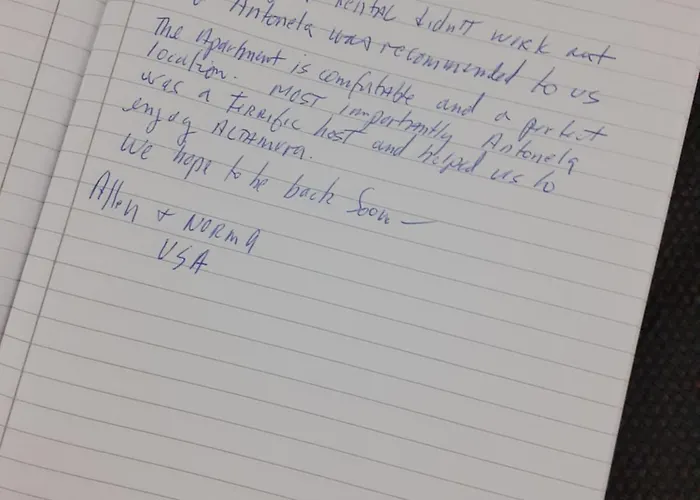 RENTAL didn't work out
Antonela was recommended to us
The Apartment is comfortable and a perfect
location. MOST importantly Antonela
was a terrific host and helped us to
enjoy ALTAMURA.
We hope to be back soon —
Allen + NORMA
USA